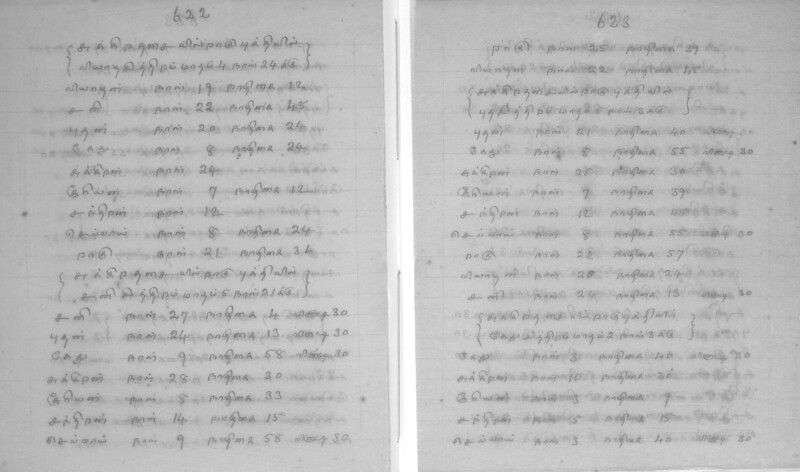 622
{ சுக்கிரதசையில் ராகு புக்தியில் }
{ வியாழசித்திரம் மாதம் 4 நாள் 24 க்கு }
வியாழன் நாள் 19 நாழிகை 12
சனி நாள் 22 நாழிகை 48
புதன் நாள் 20 நாழிகை 24
கேது நாள் 8 நாழிகை 24
சுக்கிரன் நாள் 24
சூரியன் நாள் 7 நாழிகை 12
சந்திரன் நாள் 12
செவ்வாய் நாள் 8 நாழிகை 24
ராகு நாள் 21 நாழிகை 36
{ சுக்கிரதசையில் ராகு புக்தியில் }
{ சனி சித்திரம் மாதம் 5 நாள் 21 க்கு }
சனி நாள் 27 நாழிகை 4 வினாடி 30
புதன் நாள் 24 நாழிகை 13 வினாடி 30
கேது நாள் 9 நாழிகை 58 வினாடி 30
சுக்கிரன் நாள் 28 நாழிகை 30
சூரியன் நாள் 8 நாழிகை 33
சந்திரன் நாள் 14 நாழிகை 15
செவ்வாய் நாள் 9 நாழிகை 58 வினாடி 30
623
ராகு நாள் 25 நாழிகை 39
வியாழன் நாள் 22 நாழிகை 48
{ சுக்கிரதசையில் ராகு புக்தியில் }
{ புதசித்திரம் மாதம் 5 நாள் 3 க்கு }
புதன் நாள் 21 நாழிகை 40 வினாடி 30
கேது நாள் 8 நாழிகை 55 வினாடி 30
சுக்கிரன் நாள் 25 நாழிகை 30
சூரியன் நாள் 7 நாழிகை 39
சந்திரன் நாள் 12 நாழிகை 45
செவ்வாய் நாள் 8 நாழிகை 55 வினாடி 30
ராகு நாள் 22 நாழிகை 57
வியாழன் நாள் 20 நாழிகை 24
சனி நாள் 24 நாழிகை 13 வினாடி 30
{ சுக்கிரதசையில் ராகு புக்தியில் }
{ கேது சித்திரம் மாதம் 2 நாள் 3 க்கு }
கேது நாள் 3 நாழிகை 40 வினாடி 30
சுக்கிரன் நாள் 10 நாழிகை 30
சூரியன் நாள் 3 நாழிகை 9
சந்திரன் நாள் 5 நாழிகை 15
செவ்வாய் நாள் 3 நாழிகை 40 வினாடி 30